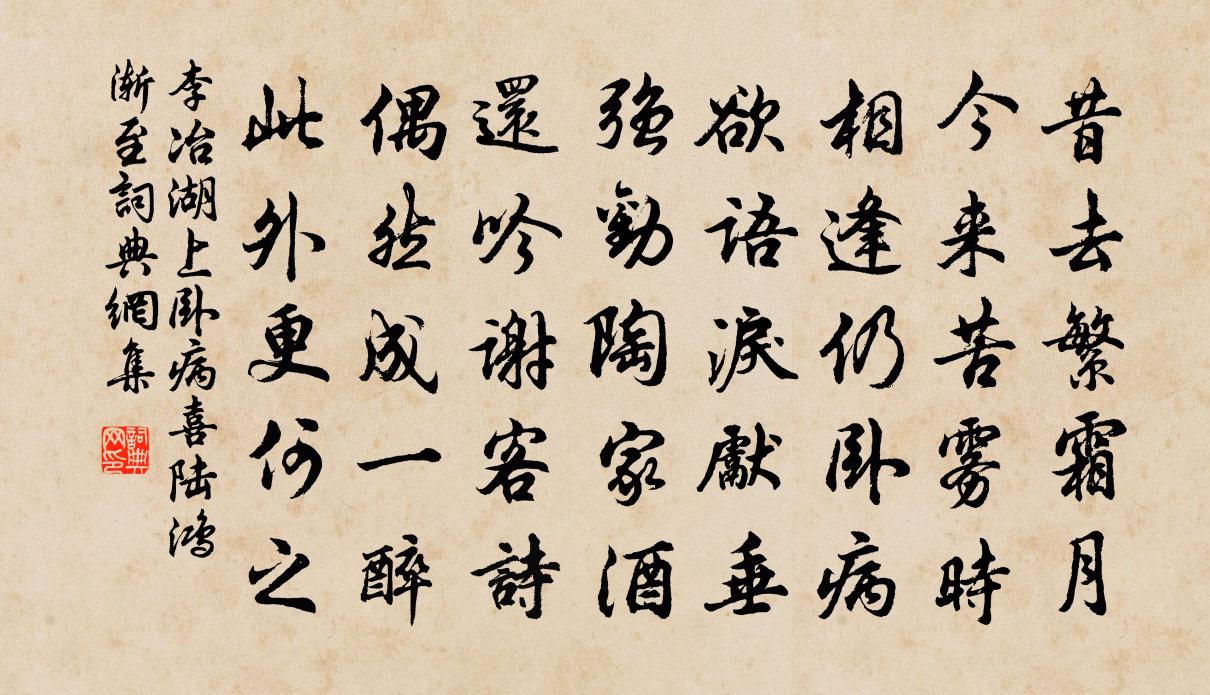 昔去繁霜月
今来苦雾時
相逢仍卧病
欲語淚獻垂
强勸陶家酒
還吟謝客詩
偶然成一醉
此外更何之
李冶湖上卧病喜陆鸿
渐至詞典網集
詞典
网印